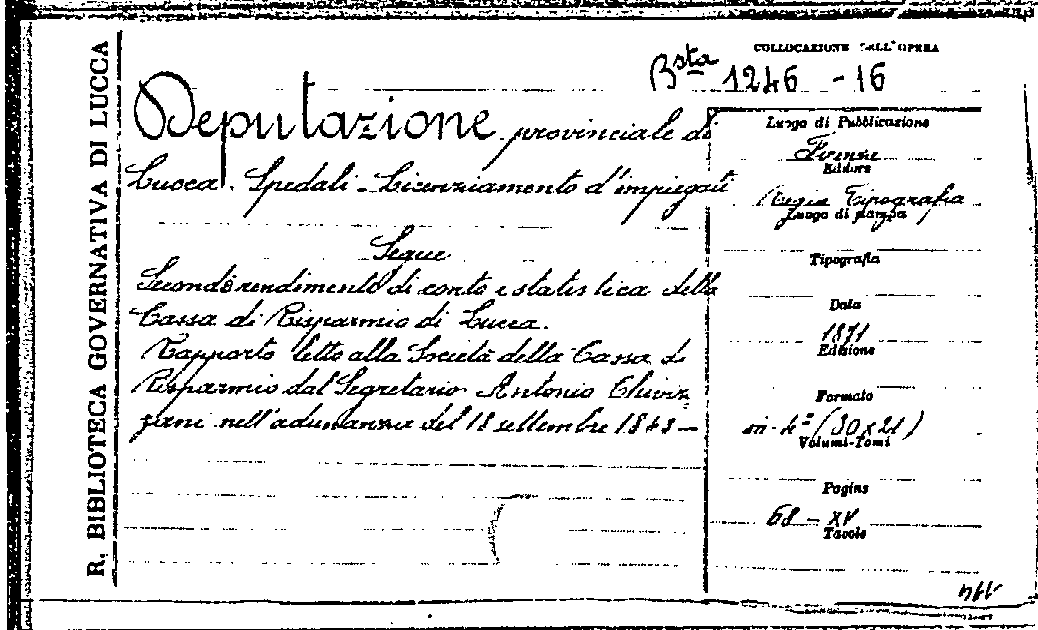 R. BIBLIOTECA GOVERNATIVA DI LUCCA
COLLOCAZIONE DELL'OPERA
Bsta 1246 - 16
Deputazione provinciale di
Lucca. Spedali - Licenziamento d'impiegati
Segue
Secondo rendimento di conto e statistica della
Cassa di Risparmio di Lucca.
Rapporto letto alla Società della Cassa di
Risparmio dal Segretario Antonio Chiviz=
zani nell'adunanza del 18 settembre 1843 -
Luogo di Pubblicazione
Firenze
Editore
Regia Tipografia
Luogo di stampa
Tipografia
Data
1871
Edizione
Formato
in-4º (30x21)
Volumi-Tomi
Pagine
68 - XV
Tavole